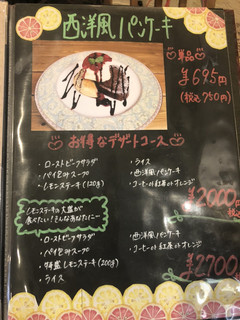 西洋風パンケーキ
単品
¥695
(税込750円)
お得なデザートコース
・ローストビーフサラダ
・パイ包みスープ
・レモンステーキ(120g)
・ライス
・西洋風パンケーキ
・コーヒーor紅茶orオレンジ
¥2000 税込
レモンステーキの大盛が
食べたい!そんなあなたに…
・ローストビーフサラダ
・パイ包みスープ
・特盛レモンステーキ(200g)
・ライス
・西洋風パンケーキ
・コーヒーor紅茶orオレンジ
¥2700